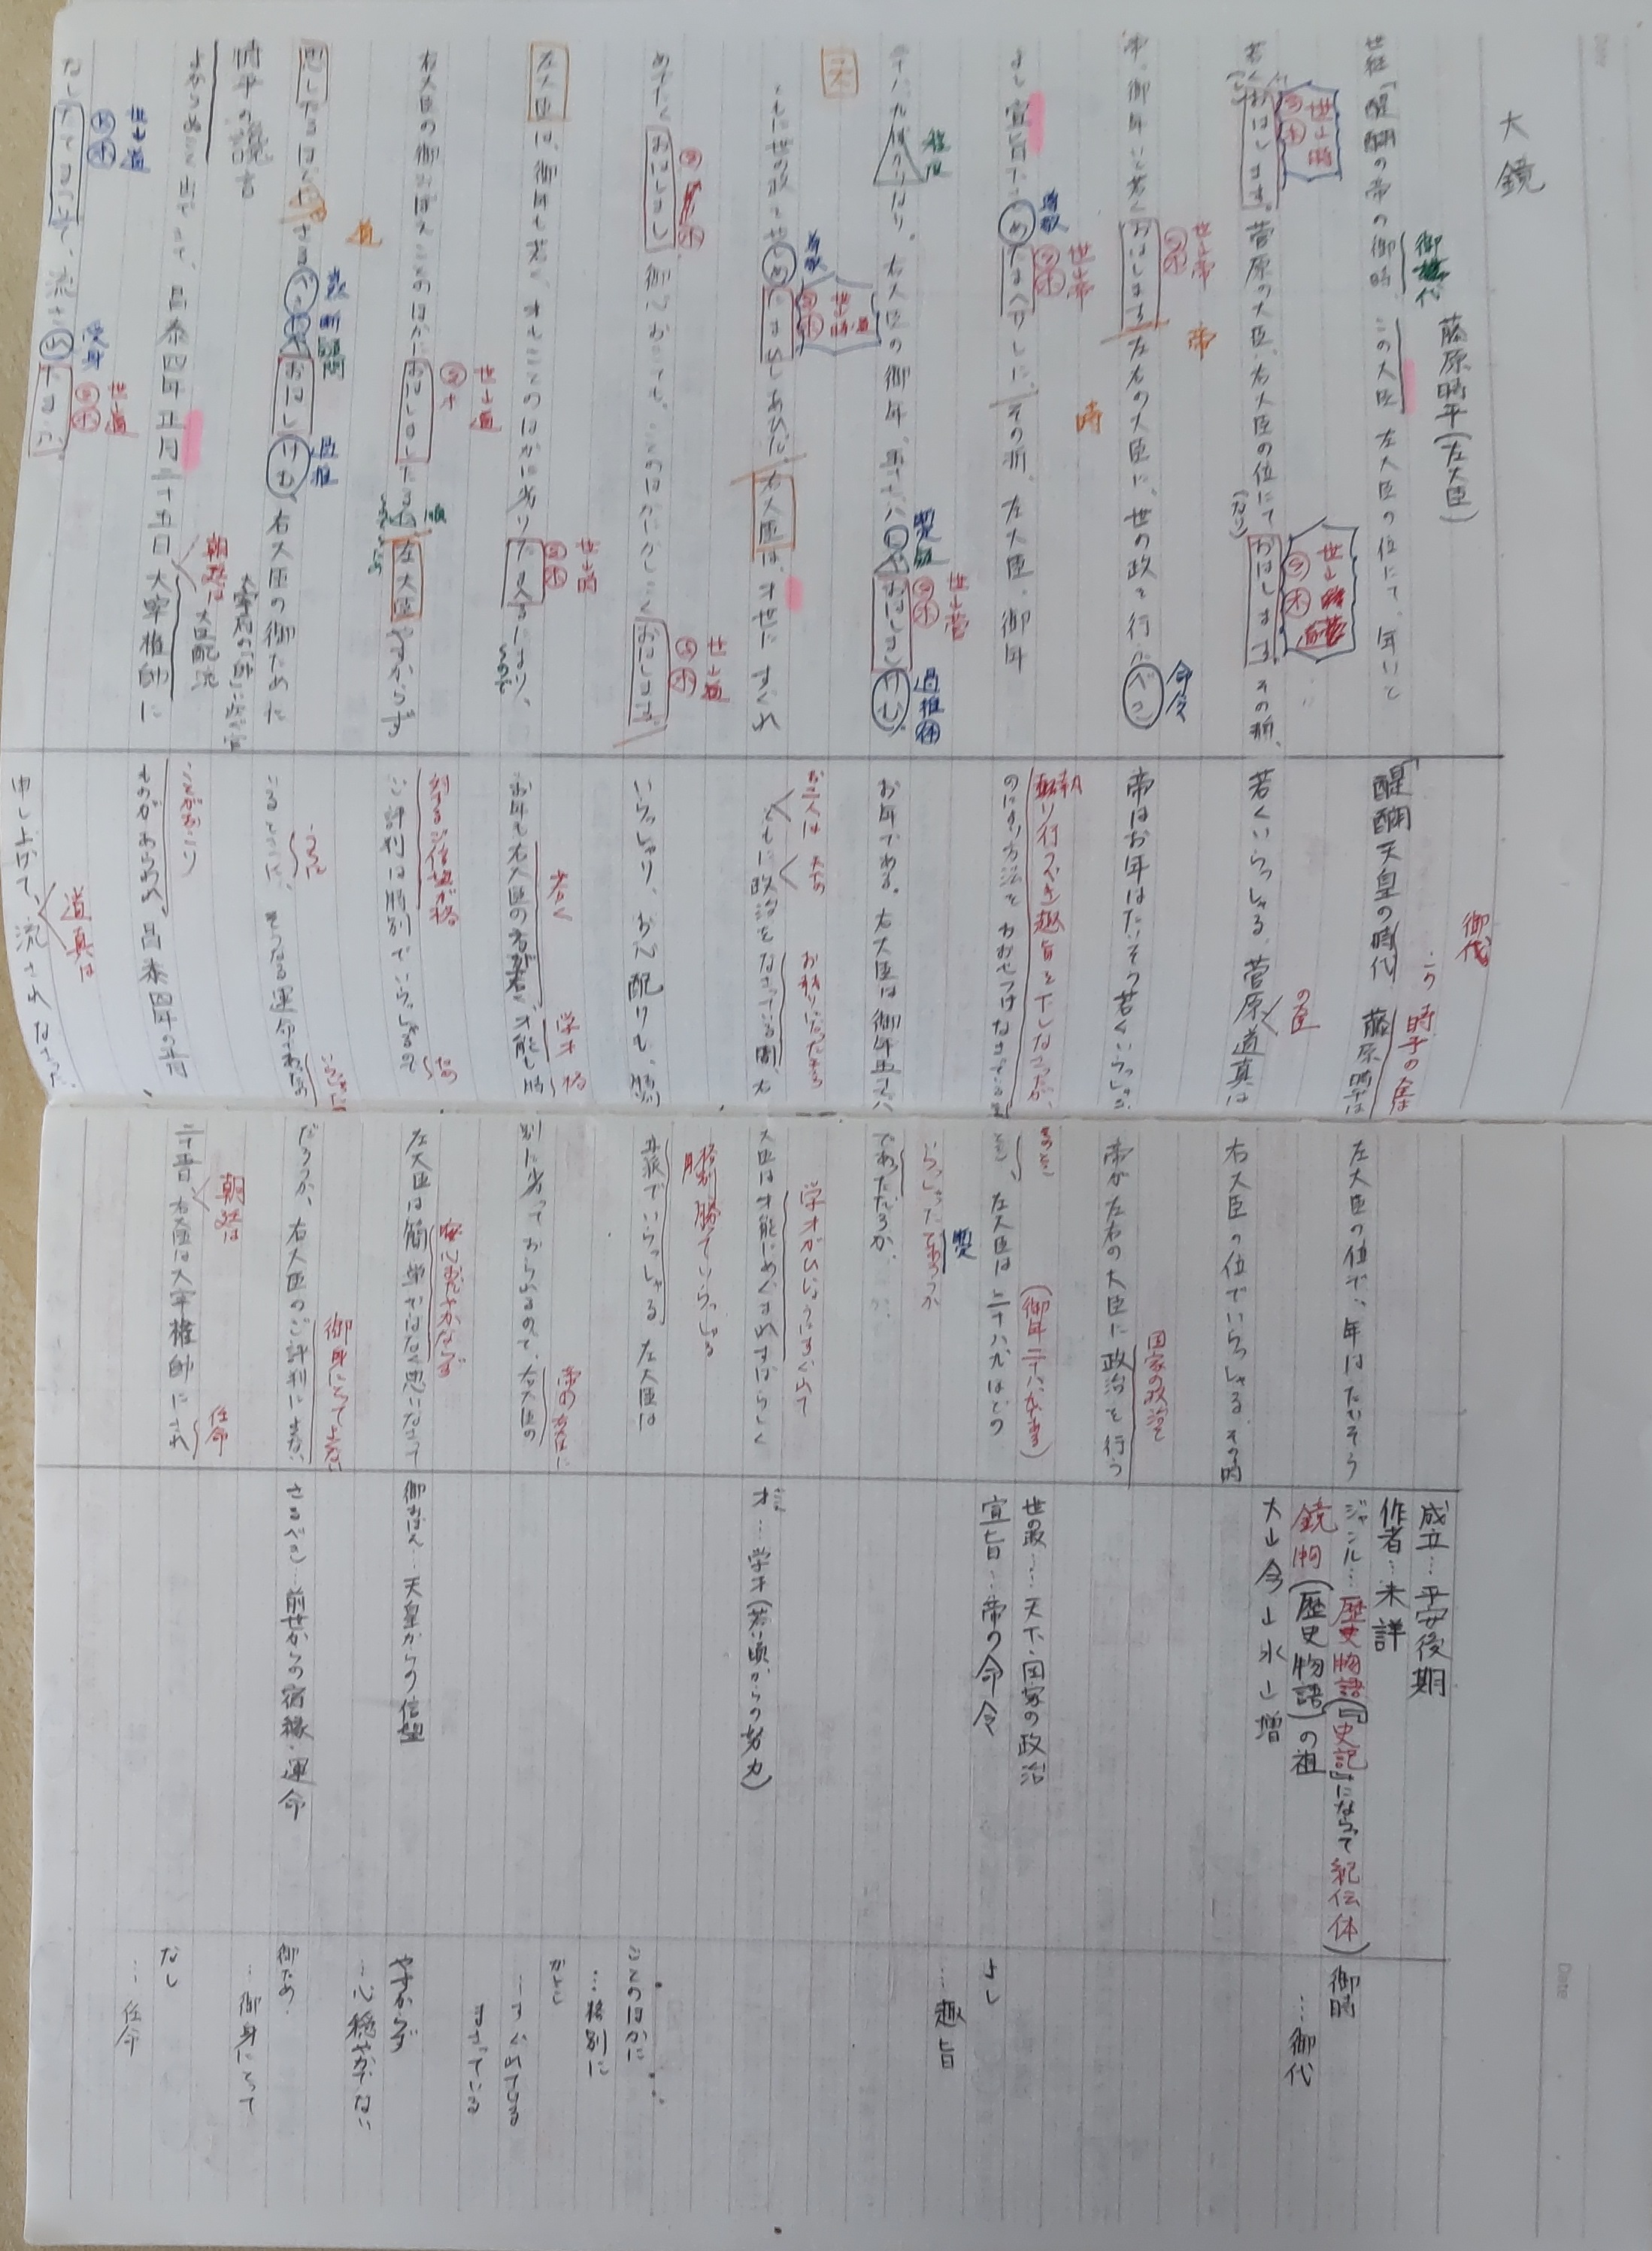 大鏡
藤原時平(左大臣)
世継「醍醐の帝の御時、この大臣、左大臣の位にて、年いと
若くおはします。菅原の大臣、右大臣の位にておはします。その折、
帝、御年いと若くおはします。左右の大臣に、世の政を行ふべき
よし宣旨下さしめたまへりしに、その折、左大臣、御年
二十八九ばかりなり。右大臣の御年、五十七八にやおはしましけむ。
ともに世の政をせしめたまひしあひだ、右大臣は、才世にすぐれ
めでたくおはしまし、御心おきても、ことのほかにかしこくおはします。
左大臣は、御年も若く、才もことのほかに劣りたまへるにより、
右大臣の御おぼえことのほかにおはしましたるに、左大臣やすからず
思したるほどに、さるべきにやおはしけむ、右大臣の御ために
時平の讒言
よからぬこと出できて、昌泰四年正月二十五日、大宰権帥に
なしたてまつりて、流されたまふ。
御代
世→時
世→帝
尊敬
命令
帝
時
程度
断定
世→菅
過推
世→道
道
断
疑問
受身
朝廷は
大臣配流
「醍醐天皇の時代
御代
藤原時平は
左大臣の位で、年はたいそう
若くいらっしゃる。菅原道真は
の大臣
右大臣の位でいらっしゃる。その時
帝はお年はたいそう若くいらっしゃる。
帝が左右の大臣に政治を行う
国家の政治を
執り行うべき趣旨を下しなさったが、
そのとき
左大臣は二十八九ほどの
お年である。右大臣は御年五十七八
であっただろうか。
いらっしゃったであろうか
お二人は
ともに政治をなさっている間、右
大臣は才能にめぐまれすばらしく
学才がひじょうにすぐれて
いらっしゃり、お心配りも、格
別でいらっしゃる。左大臣は
格別勝っていらっしゃる
お年も右大臣の方が若く、才能も格
若く
学才
格
別に劣っておられるので、右大臣の
帝の右大臣に
対するご信望が格
ご評判は特別でいらっしゃるので
左大臣は簡単ではなく思いなさって
安心おだやかならず
いるときに、そうなる運命であったの
うちに
だろうか、右大臣のご評判によくない
御身にとってよくない
ことがおこり
ものがあらわれ、昌泰四年の正月
二十五日、右大臣は大宰権帥にされ
朝廷は
任命
申し上げて、流されなさった。
道真は
成立…平安後期
作者…未詳
ジャンル…歴史物語(『史記』にならって紀伝体)
鏡物(歴史物語)の祖
大→今→水→増
世の政…天下・国家の政治
宣旨…帝の命令
才…学才(若い頃からの努力)
御おぼえ…天皇からの信望
さるべき…前世からの宿縁・運命
御時
…御代
よし
…趣旨
ことのほかに
…格別に
かしこし
…すぐれている
まさっている
やすからず
…心穏やかでない
御ため
…御身にとって
なし
…任命
Date